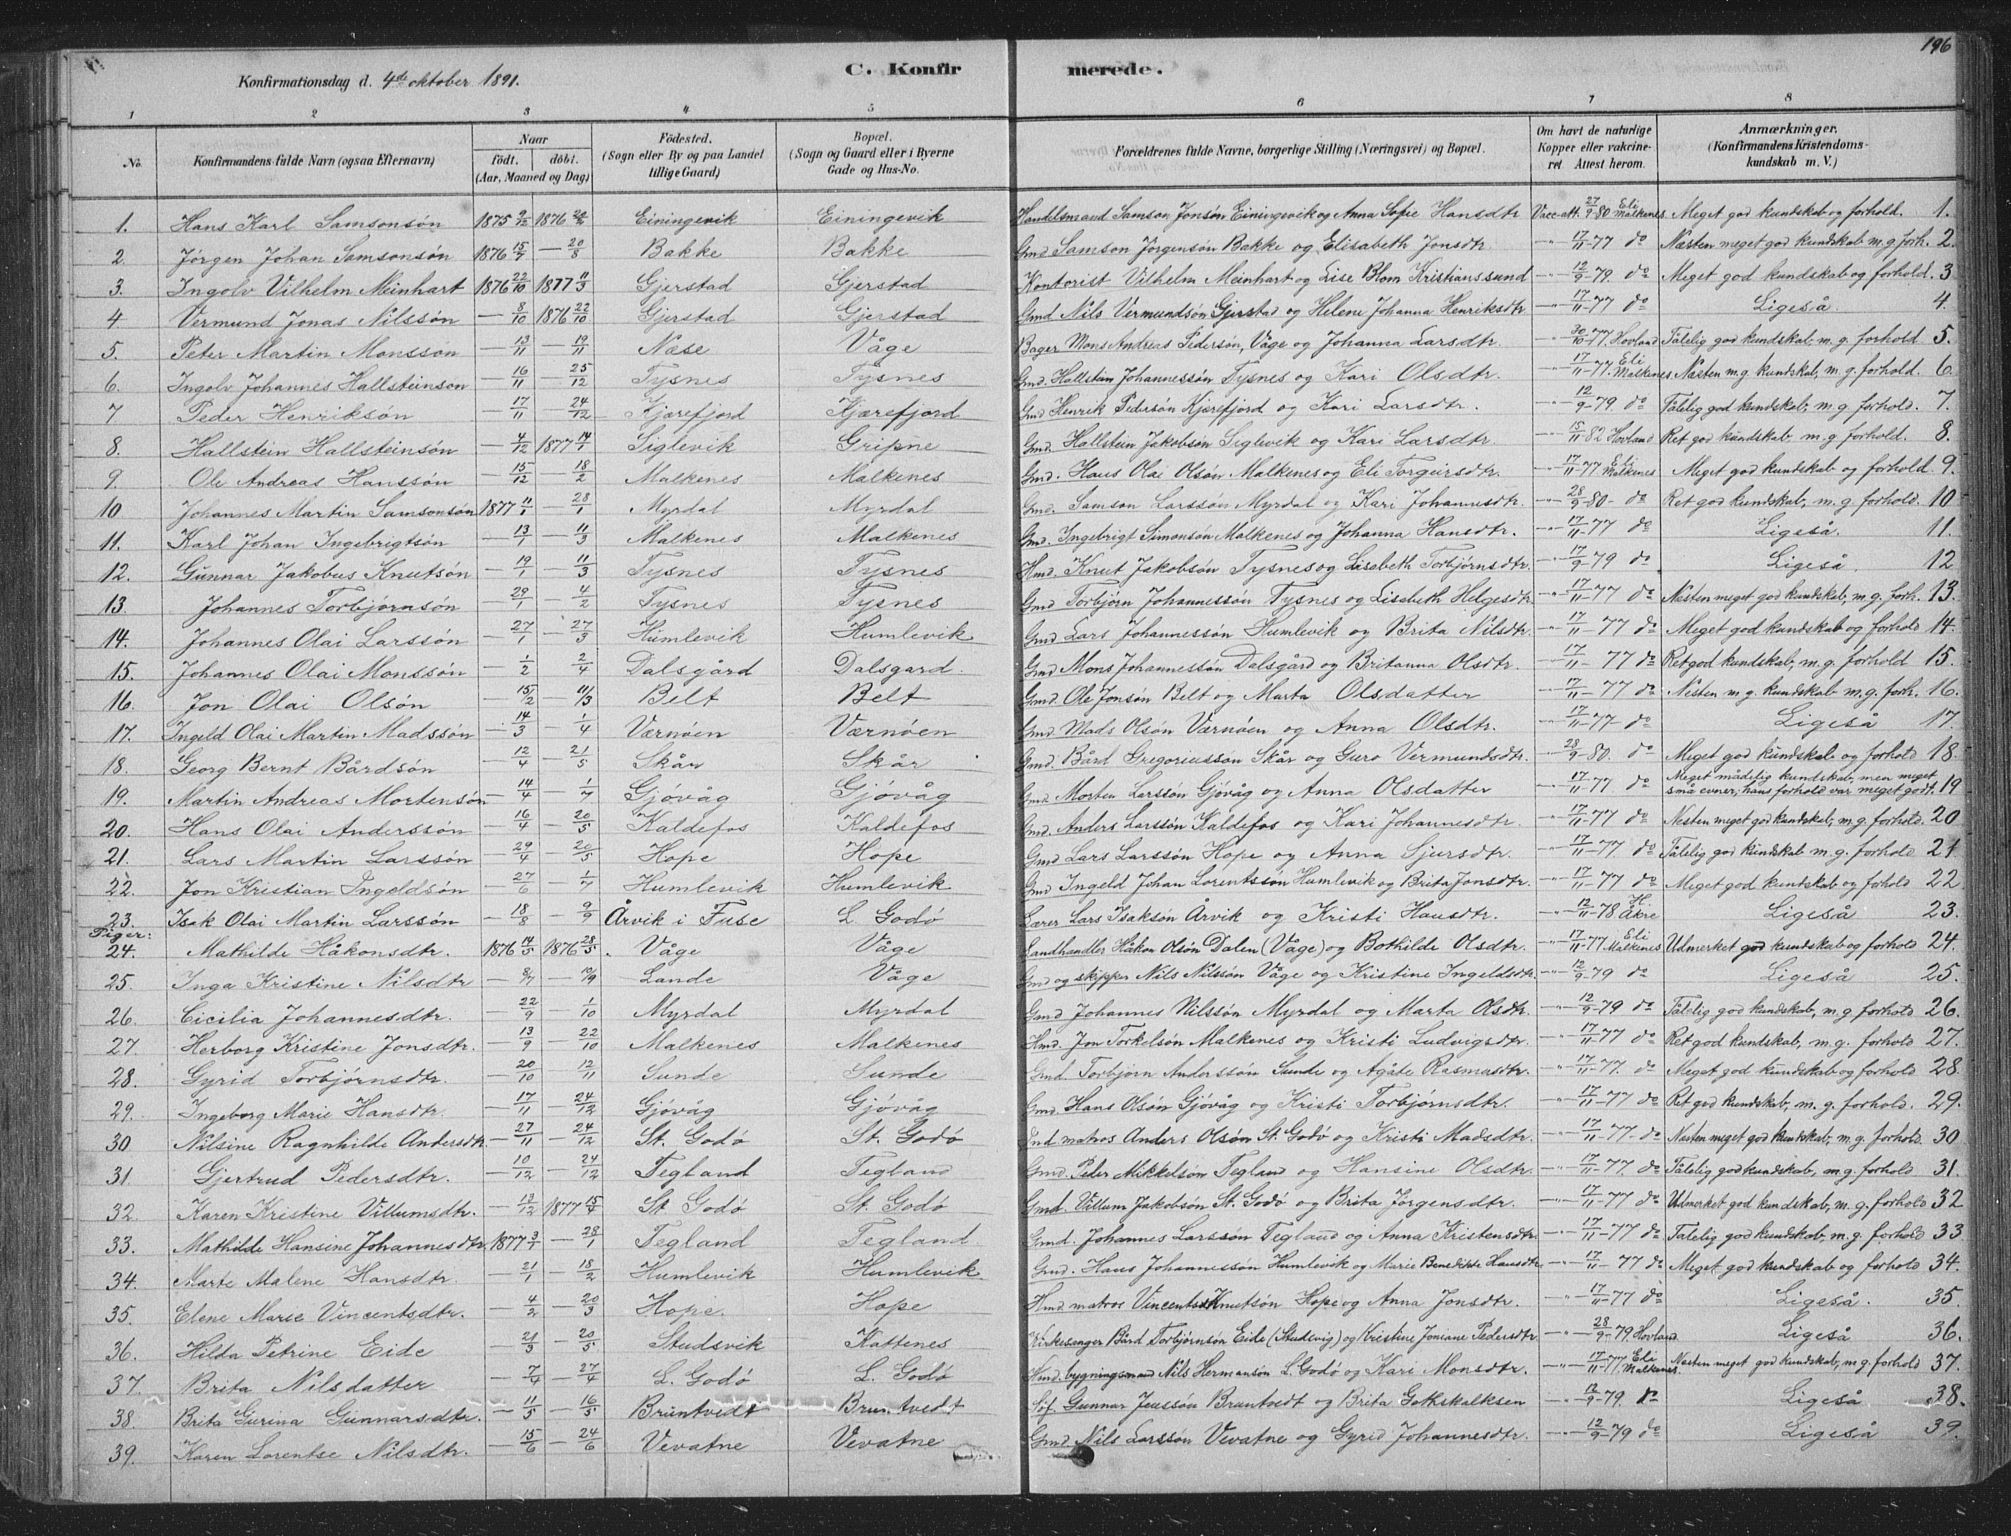 196
Konfirmationsdag d. 4de oktober 1891. C. Konfirmerede.
1 2 3 4 5 6 7 8
No. Konfirmandens fulde Navn (ogsaa Efternavn) Naar födt. döbt. (Aar, Maaned og Dag) Födested. (Sogn eller By og paa Landet tillige Gaard) Bopæl. (Sogn og Gaard eller i Byerne Gade og Hus-No. Forældrenes fulde Navne, borgerlige Stilling (Næringsvei) og Bopæl. Om havt de naturlige Kopper eller vakcineret. Attest herom. Anmærkninger. (Konfirmandens Kristendomskundskab m. V.)
1. Hans Karl Samsonsön 1875 1876 Einingevik Einingevik Handelsmand Samson Jonsön Einingevik og Anna Sofie Hansdtr Vacc. att. 27/9-80 Eli Malkenes Meget god kundskab og forhold. 1.
2. Jörgen Johan Samsonsön 1876 15/7 — 20/8 Bakke Bakke Gmd Samson Jörgensön Bakke og Elisabeth Jonsdtr. 17/11-77 do Næsten meget god kundskab m. g. forh. 2.
3. Ingolv Vilhelm Meinhart 1876 22/10 1877 11/3 Gjerstad Gjerstad Kontorist Vilhelm Meinhart og Lise Blom Kristianssund 12/9-79. do Meget god kundskab og forhold. 3
4 Vermund Jonas Nilssön — 8/10 1876 22/10 Gjerstad Gjerstad Gmd Nils Vermundsön Gjerstad og Helene Johanna Henriksdtr 17/11-77 do Ligeså 4.
5. Peter Martin Monssön — 13/11 — 19/11 Næse Våge Bager Mons Andreas Pedersön, Våge og Johanna Larsdtr. 30/10-77. Hovland Tålelig god kundskab m. g. forhold 5.
6. Ingolv Johannes Hallsteinson — 16/11 — 25/12 Tysnes Tysnes Gmd. Hallstein Johannessön Tysnes og Kari Olsdtr. 17/11-77. Eli Malkenes Næsten m. g. kundskab, m. g. forhold. 6.
7 Peder Henriksön — 17/11 — 24/12 Kjærefjord Kjærefjord Gmd Henrik Pedersön Kjærefjord og Kari Larsdtr. 12/9-79. do Tålelig god kundskab, m. g. forhold. 7.
8. Hallstein Hallsteinsön — 4/12 1877 14/1 Siglevik Gripne Gmd. Hallstein Jakobsön Siglevik og Kari Larsdtr. 15/11-82 Hovland Ret god kundskab m. g. forhold. 8.
9. Ole Andreas Hanssön — 15/12 — 18/2 Malkenes Malkenes Gmd. Hans Olai Olsön Malkenes og Eli Torgeirsdtr. 17/11-77 Eli Malkenes Meget god kundskab og forhold 9.
10 Johannes Martin Samsonsön 1877 11/1 — 28/1 Myrdal Myrdal Gmd. Samson Larssön Myrdal og Kari Johannesdtr. 28/9-80- do Ret god kundskab, m. g. forhold. 10
11. Karl Johan Ingebrigtsön — 13/1 — 11/3 Malkenes Malkenes Gmd. Ingebrigt Simonsön Malkenes og Johanna Hansdtr. 17/11-77 do Ligeså. 11.
12. Gunnar Jakobus Knutsön — 19/1 — 11/3 Tysnes Tysnes Hmd. Knut Jakobsön Tysnes og Lisabeth Torbjörnsdtr. 17/9-79 do Ligeså. 12
13. Johannes Torbjörnsön — 29/1 — 4/2 Tysnes Tysnes Gmd Torbjörn Johannessön Tysnes og Lisebeth Helgesdtr 17/11-77 do Næsten meget god kundskab, m. g. forh. 13.
14. Johannes Olai Larssön — 27/1 — 27/3 Humlevik Humlevik Gmd Lars Johannessön Humlevik og Brita Nilsdtr. 17/11-77 do Meget god kundskab og forhold 14.
15. Johannes Olai Monssön — 1/2 — 2/4 Dalsgård Dalsgard. Gmd Mons Johannessön Dalsgård og Britanna Olsdtr. 17/11-77 do Ret god kundskab, m. g. forhold 15.
16. Jon Olai Olsön — 15/2 — 11/3 Belt Belt Gmd. Ole Jonsön Belt og Marta Olsdatter 17/11-77 do Nesten m. g. kundskab m. g. forh. 16.
17. Ingeld Olai Martin Madssön — 14/3 — 1/4 Værnöen Værnöen Gmd. Mads Olsön Værnöen og Anna Olsdtr. 17/11-77- do Ligeså 17.
18. Georg Bernt Bårdsön — 12/4 — 21/5 Skår Skår Gmd. Bård Gregoriussön Skår og Guro Vermundsdtr. 28/9-80. do Meget god kundskab og forhold 18.
19. Martin Andreas Mortensön — 14/4 — 1/7 Gjövåg Gjövåg Gmd Morten Larssön Gjövåg og Anna Olsdatter 17/11-77. do Meget mådelig kundskab, men meget små evner; hans forhold var meget godt. 19
20. Hans Olai Anderssön — 16/4 — 20/5 Kaldefos Kaldefos Gmd. Anders Larssön Kaldefos og Kari Johannesdtr. 17/11-77 do Nesten meget god kundskab, m. g. forhold 20
21. Lars Martin Larssön — 29/4 — 20/5 Hope Hope Gmd Lars Larssön Hope og Anna Sjursdtr. 17/11-77. do Tålelig god kundskab m. g. forhold 21
22. Jon Kristian Ingeldsön — 27/6 — 1/7 Humlevik Humlevik Gmd Ingeld Johan Lorentssön Humlevik og Brita Jonsdtr. 17/11-77 do Meget god kundskab og forhold 22.
23. Isak Olai Martin Larssön — 18/8 — 9/9 Årvik i Fuse L. Godö Lærer Lars Isaksön Årvik og Kristi Hansdtr. 12/11-78 Åkre Ligeså 23.
Piger:
24. Mathilde Håkonsdtr. 1876 14/5 1876 28/5 Våge Våge Landhandler Håkon Olsön Dalen (Våge) og Bothilde Olsdtr. 17/11-77 Eli Malkenes Udmerket god kundskab og forhold 24.
25. Inga Kristine Nilsdtr Lande Våge Gmd og skipper Nils Nilssön Våge og Kristine Ingeldsdtr. 12/9-79 do Ligeså 25.
26 Cicilia Johannesdtr. — 22/9 — 1/10 Myrdal Myrdal Gmd Johannes Nilssön Myrdal og Marta Olsdtr. 12/9-79. do Tålelig god kundskab, m. g. forhold 26.
27. Herborg Kristine Jonsdtr. — 13/9 — 22/10 Malkenes Malkenes Hmd. Jon Torkelsön Malkenes og Kristi Ludvigsdtr. 17/11-77 do Ret god kundskab, m. g. forhold 27.
28. Gyrid Torbjörnsdtr. — 20/10 — 12/11 Sunde Sunde Gmd. Torbjörn Anderssön Sunde og Agåte Rasmusdtr. 17/11-77. do Meget god kundskab og forhold 28.
29. Ingeborg Marie Hansdtr. — 17/11 — 24/12 Gjövåg Gjövåg Gmd. Hans Olsön Gjövåg og Kristi Torbjörnsdtr. 17/11-77 do Ret god kundskab, m. g. forhold. 29.
30 Nilsine Ragnhilde Andersdtr. — 27/11 — 24/12 St. Godö St. Godö Ind. matros Anders Olsön St. Godö og Kristi Madsdtr. 17/11-77- do Nesten meget god kundskab, m. g. forhold. 30
31. Gjertrud Pedersdtr. — 10/12 — 24/12 Tegland Tegland Gmd. Peder Mikkelsön Tegland og Hansine Olsdtr. 17/11-77. do Tålelig god kundskab, m. g. forhold 31.
32. Karen Kristine Villumsdtr. 1877 15/4 St. Godö St. Godö Gmd. Villum Jakobsön St. Godö og Brita Jörgensdtr. 17/11-77 do Udmerket god kundskab, m. g. forhold 32
33. Mathilde Hansine Johannesdtr. 1877 3/1 — 28/1 Tegland Tegland. Gmd. Johannes Larssön Tegland og Anna Kristensdtr. 17/11-77 do Tålelig god kundskab, m. g. forhold 33.
34. Marte Malene Hansdtr. — 21/1 — 18/2 Humlevik Humlevik Gmd. Hans Johannessön Humlevik og Marie Benedikte Hansdtr. 17/11 77 do Meget god kundskab og forhold 34.
35. Elene Marie Vincentsdtr. — 4/2 — 20/3 Hope Hope Hmd matros Vincents Knutsön Hope og Anna Jonsdtr. 17/11-77 do Ligeså. 35.
36. Hilda Petrine Eide — 21/3 — 20/5 Studsvik Kattenes Kirkesanger Bård Torbjörnsön Eide (Studsvig) og Kristine Joniane Pedersdtr 28/9-79. Hovland Ligeså 36.
37. Brita Nilsdatter — 7/4 — 27/4 L. Godö L. Godö Hmd. bygningsmand Nils Hermansön L. Godö og Kari Monsdtr. 17/11-77. Eli Malkenes Nesten meget god kundskab, m. g. forhold 37.
38. Brita Gurina Gunnarsdtr. — 11/5 — 16/5 Bruntvedt Bruntvedt Söf. Gunnar Jenssön Bruntvedt og Brita Gotskalksen 12/9-79. do Ligeså 38.
39. Karen Lorentse Nilsdtr. — 15/6 — 24/6 Vevatne Vevatne Gmd. Nils Larssön Vevatne og Gyrid Johannesdtr. 12/9-79 do Ligeså 39.